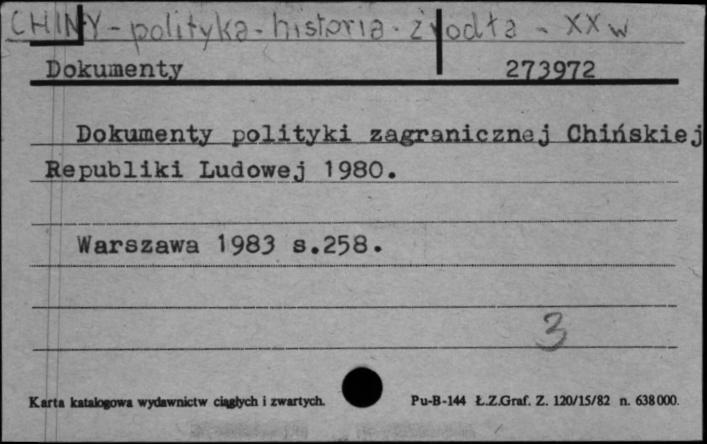 CHINY - polityka - historia - źródła - XX w
Dokumenty 273972
Dokumenty polityki zagranicznej Chińskiej
Republiki Ludowej 1980.
Warszawa 1983 s.258.
3
Karta katalogowa wydawnictw ciągłych i zwartych. Pu-B-144 Ł.Z.Graf. Z. 120/15/82 n. 638000.